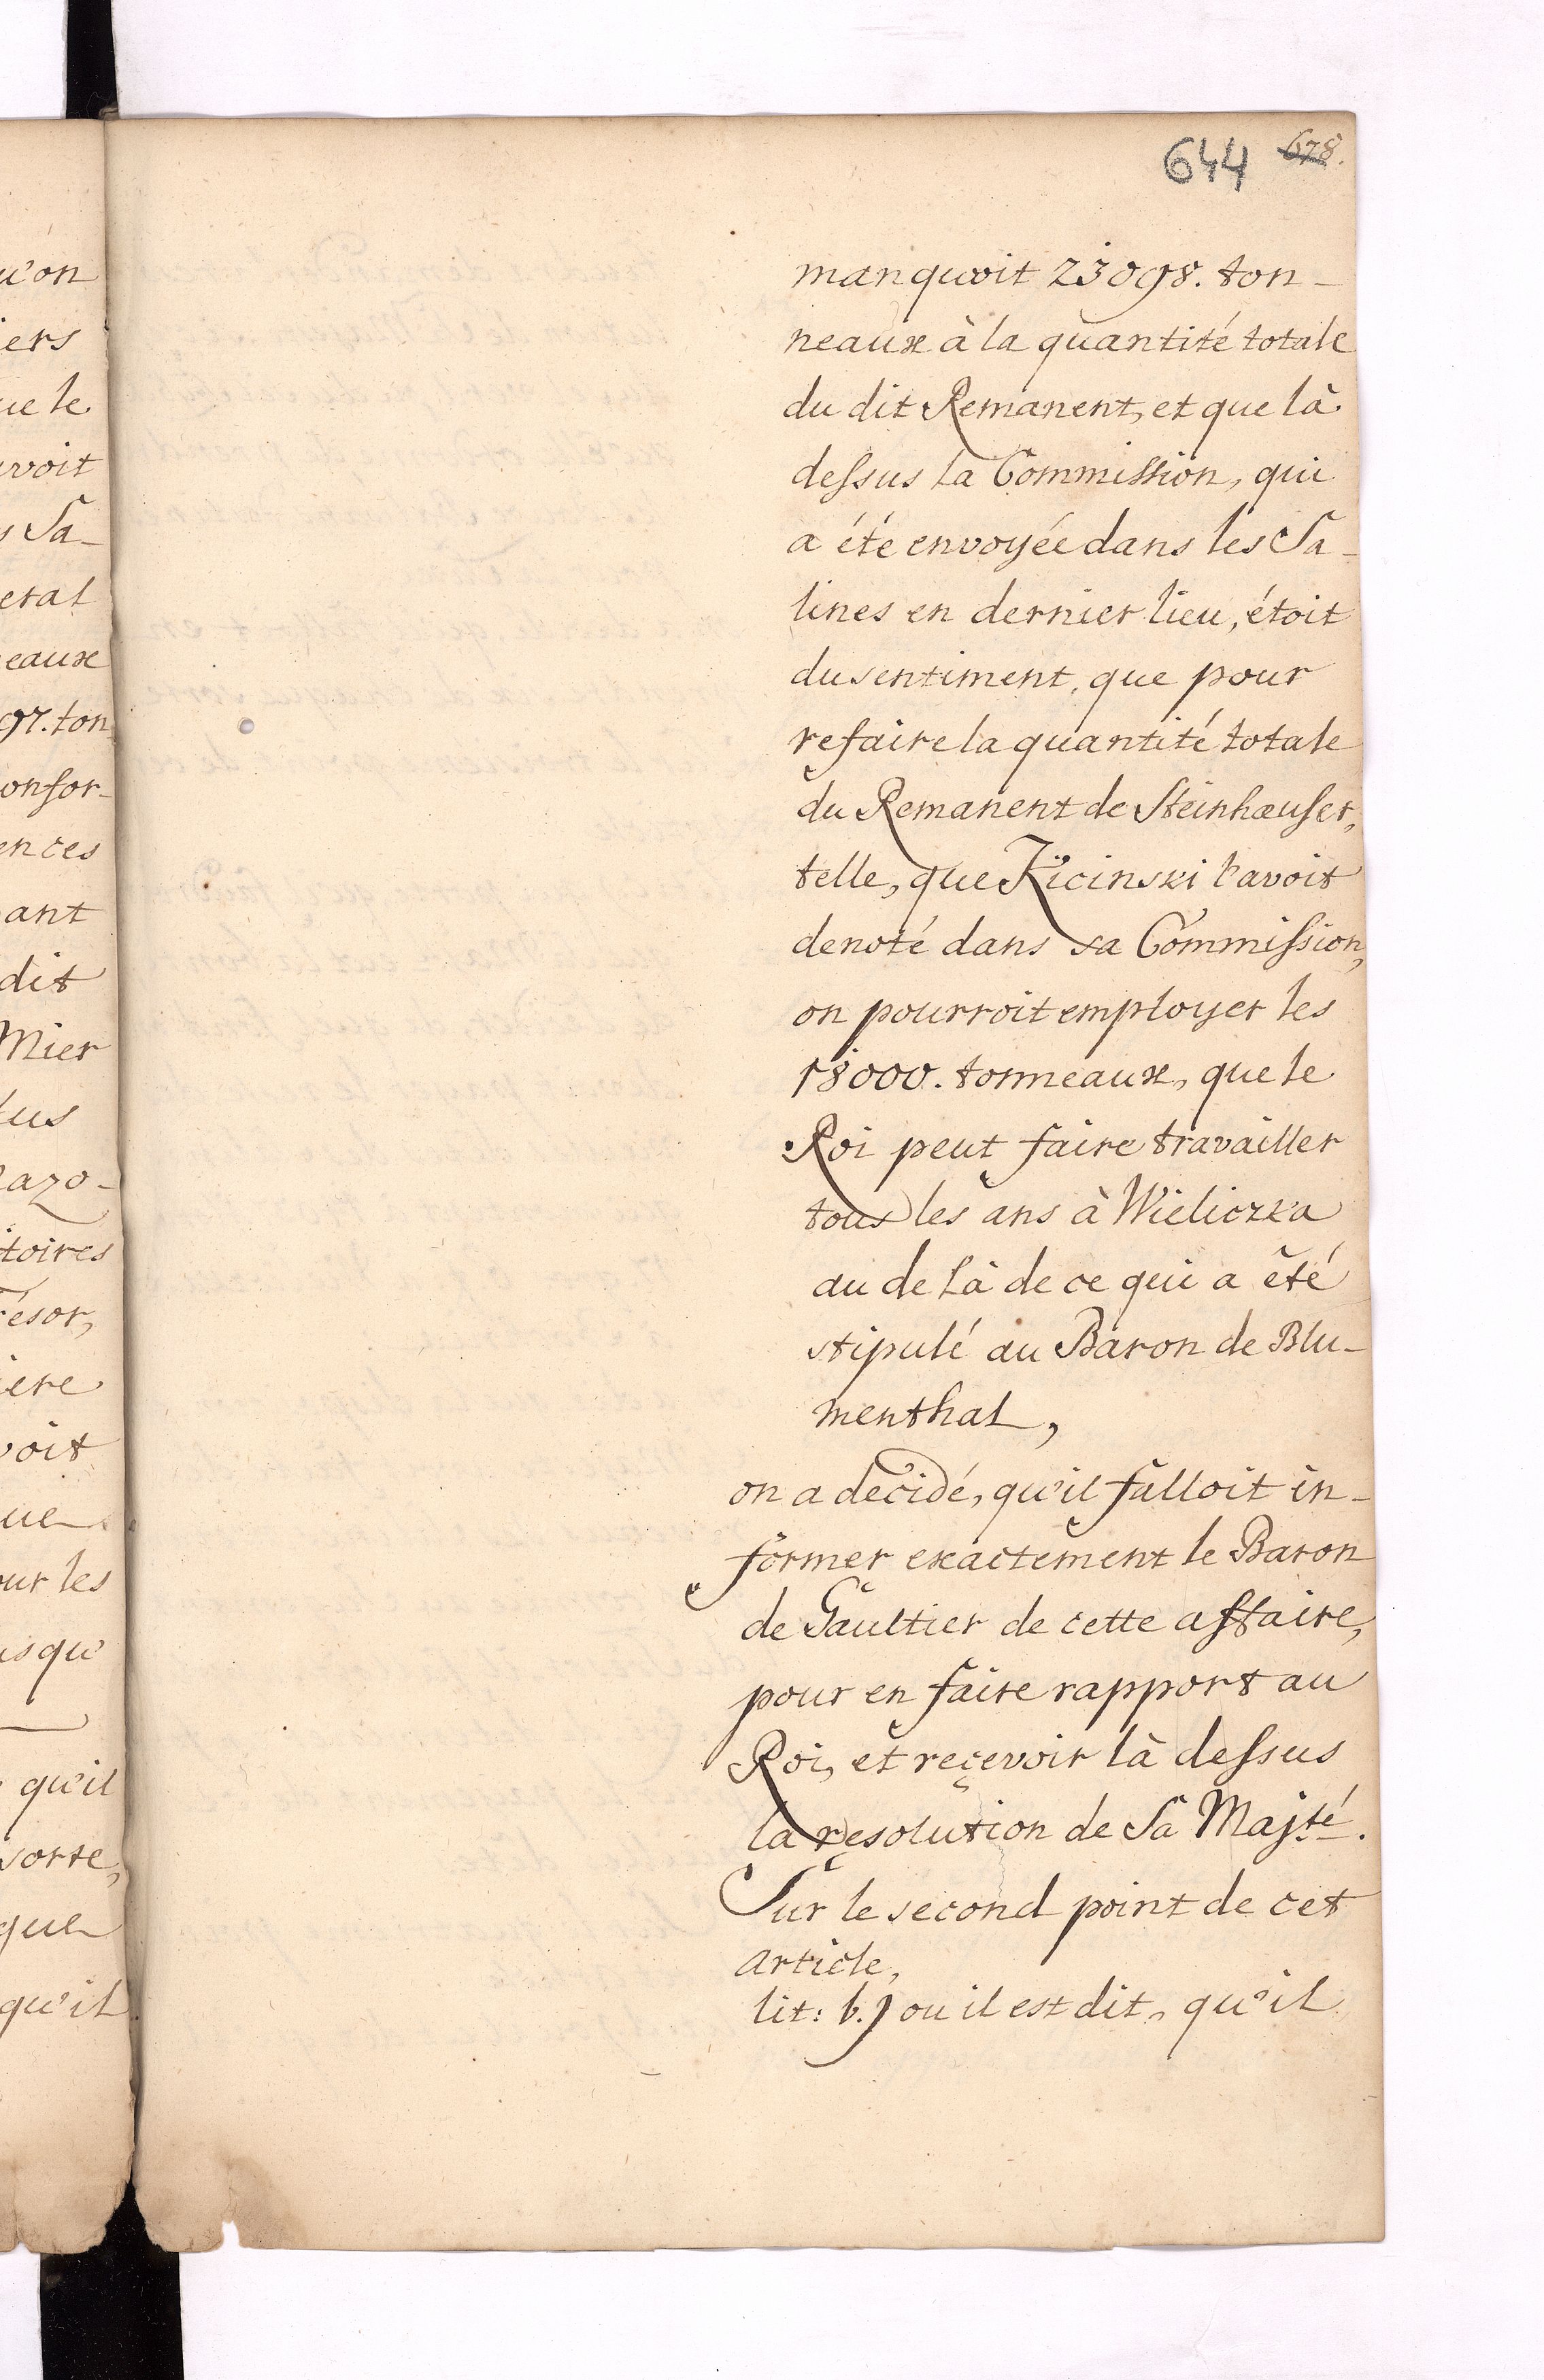 644 678.
manquoit 23098. ton-
neaux à la quantité totale
du dit Remanent, et que là
dessus la Commission, qui
a été envoyée dans les Sa-
lines en dernier lieu, étoit
du sentiment, que pour
refaire la quantité totale
du Remanent de Steinhæuser,
telle, que Kicinski l'avoit
denoté dans sa Commission,
on pourroit employer les
18000. tonneaux, que le
Roi peut faire travailler
tous les ans à Wieliczka
au de là de ce qui a été
stipulé au Baron de Blu-
menthal,
on a decidé, qu'il falloit in-
former exactement le Baron
de Gaultier de cette affaire,
pour en faire rapport au
Roi, et reçevoir là dessus
la resolution de Sa Majté.
Sur le second point de cet
article,
lit: b.) ou il est dit, qu'il
u'on
iers
ue le
avoit
s Sa-
eral
eaux
97. ton
onfor-
ences
ant
dit
Mier
lus
azo-
itoires
résor,
iere
voit
ue
our les
usqu'
qu'il
sorte,
que
qu'il